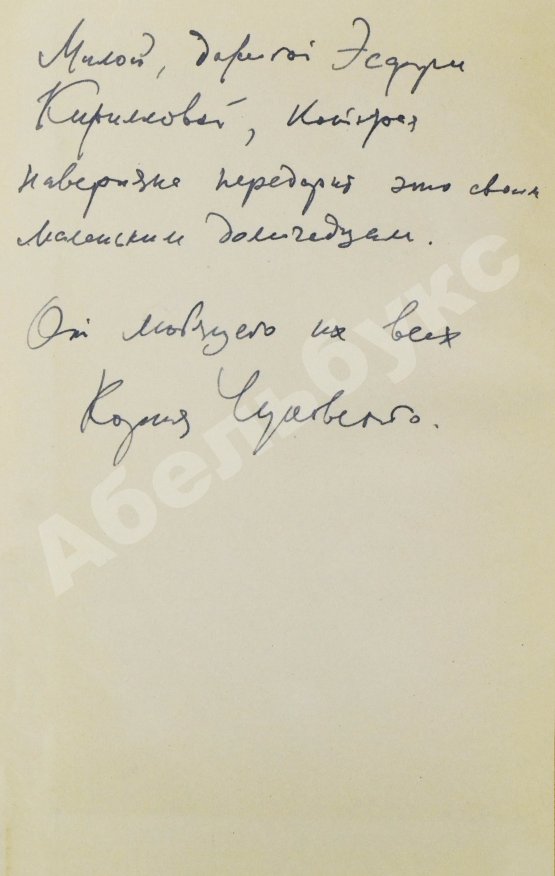 Милой, дорогой Эсфири
Кирилловой, которая
наверняка передарит это своим
маленьким домочадцам.
От любящего их всех
Корнея Чуковского.
Абельбукс